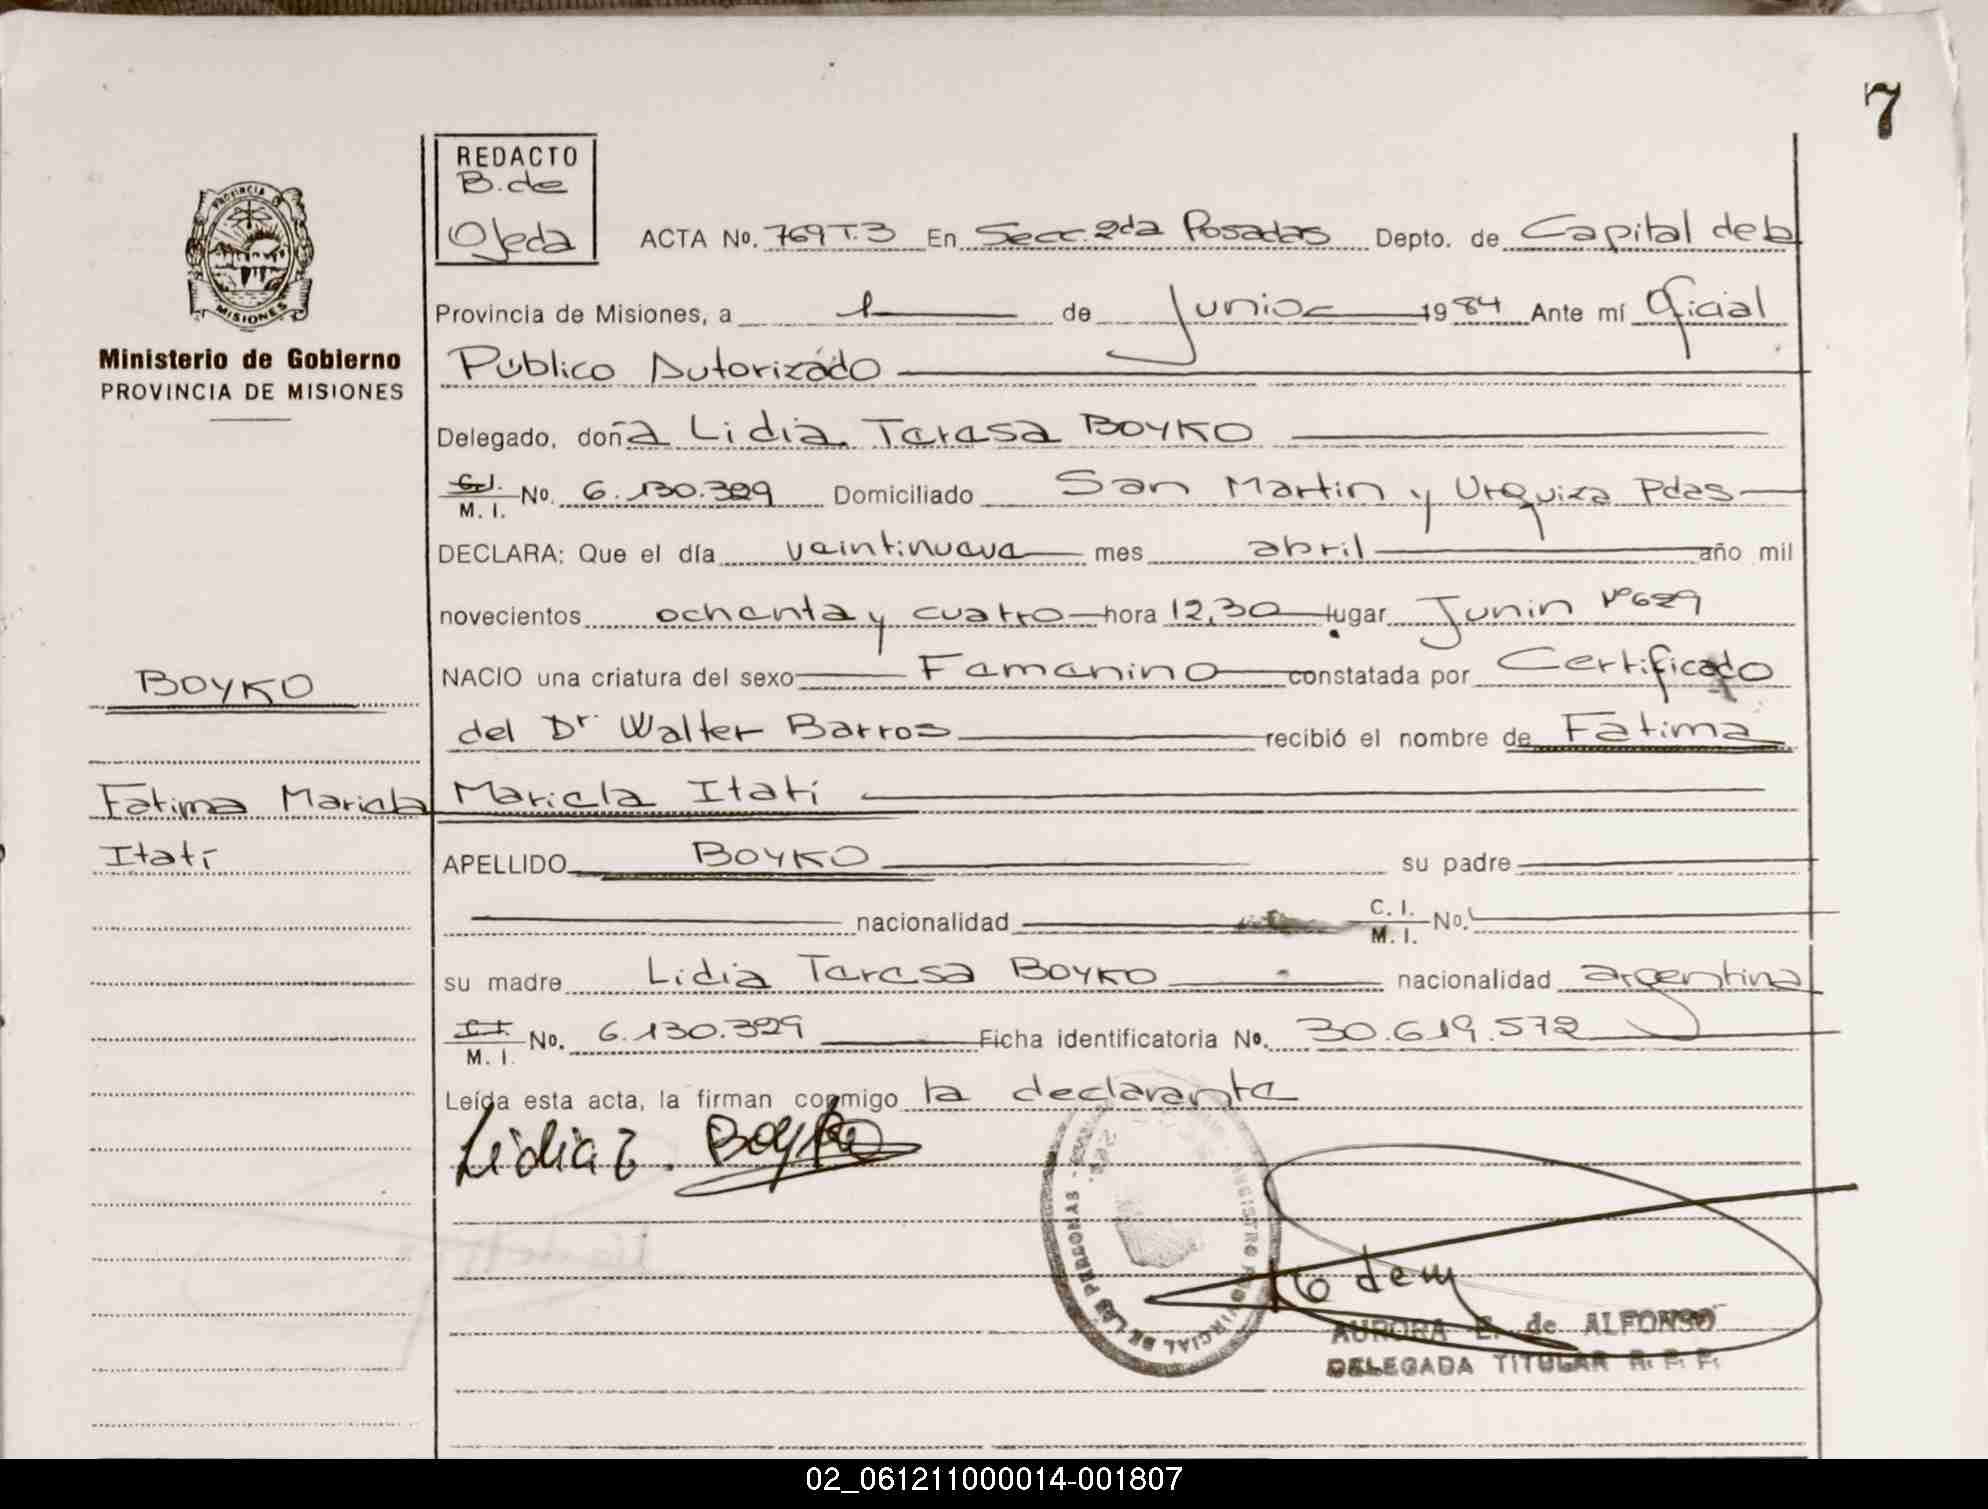 7
REDACTO
B. de
Ojeda
PROVINCIA
MISIONES
Ministerio de Gobierno
PROVINCIA DE MISIONES
ACTA No. 769 T.3 En Secc. 2da Posadas Depto. de Capital de la
Provincia de Misiones, a 1 de Junio 1984 Ante mí Oficial
Público Autorizado
Delegado, doña Lidia Teresa BOYKO
C.I. M. I. No. 6.130.329 Domiciliado San Martin y Urquiza Pdas
DECLARA: Que el día veintinueve mes abril año mil
novecientos ochenta y cuatro hora 12,30 lugar Junin Nº 629
NACIO una criatura del sexo Femenino constatada por Certificado
del Dr Walter Barros recibió el nombre de Fatima
Mariela Itatí
BOYKO
Fatima Mariela
Itatí
APELLIDO BOYKO su padre
nacionalidad C. I. M. I. No.
su madre Lidia Teresa BOYKO nacionalidad argentina
C.I. M. I. No. 6.130.329 Ficha identificatoria No. 30.619.572
Leída esta acta, la firman conmigo la declarante
Lidia T. Boyko
REGISTRO PROVINCIAL DE LAS PERSONAS
AURORA E. de ALFONSO
DELEGADA TITULAR R. P. P.
02_061211000014-001807